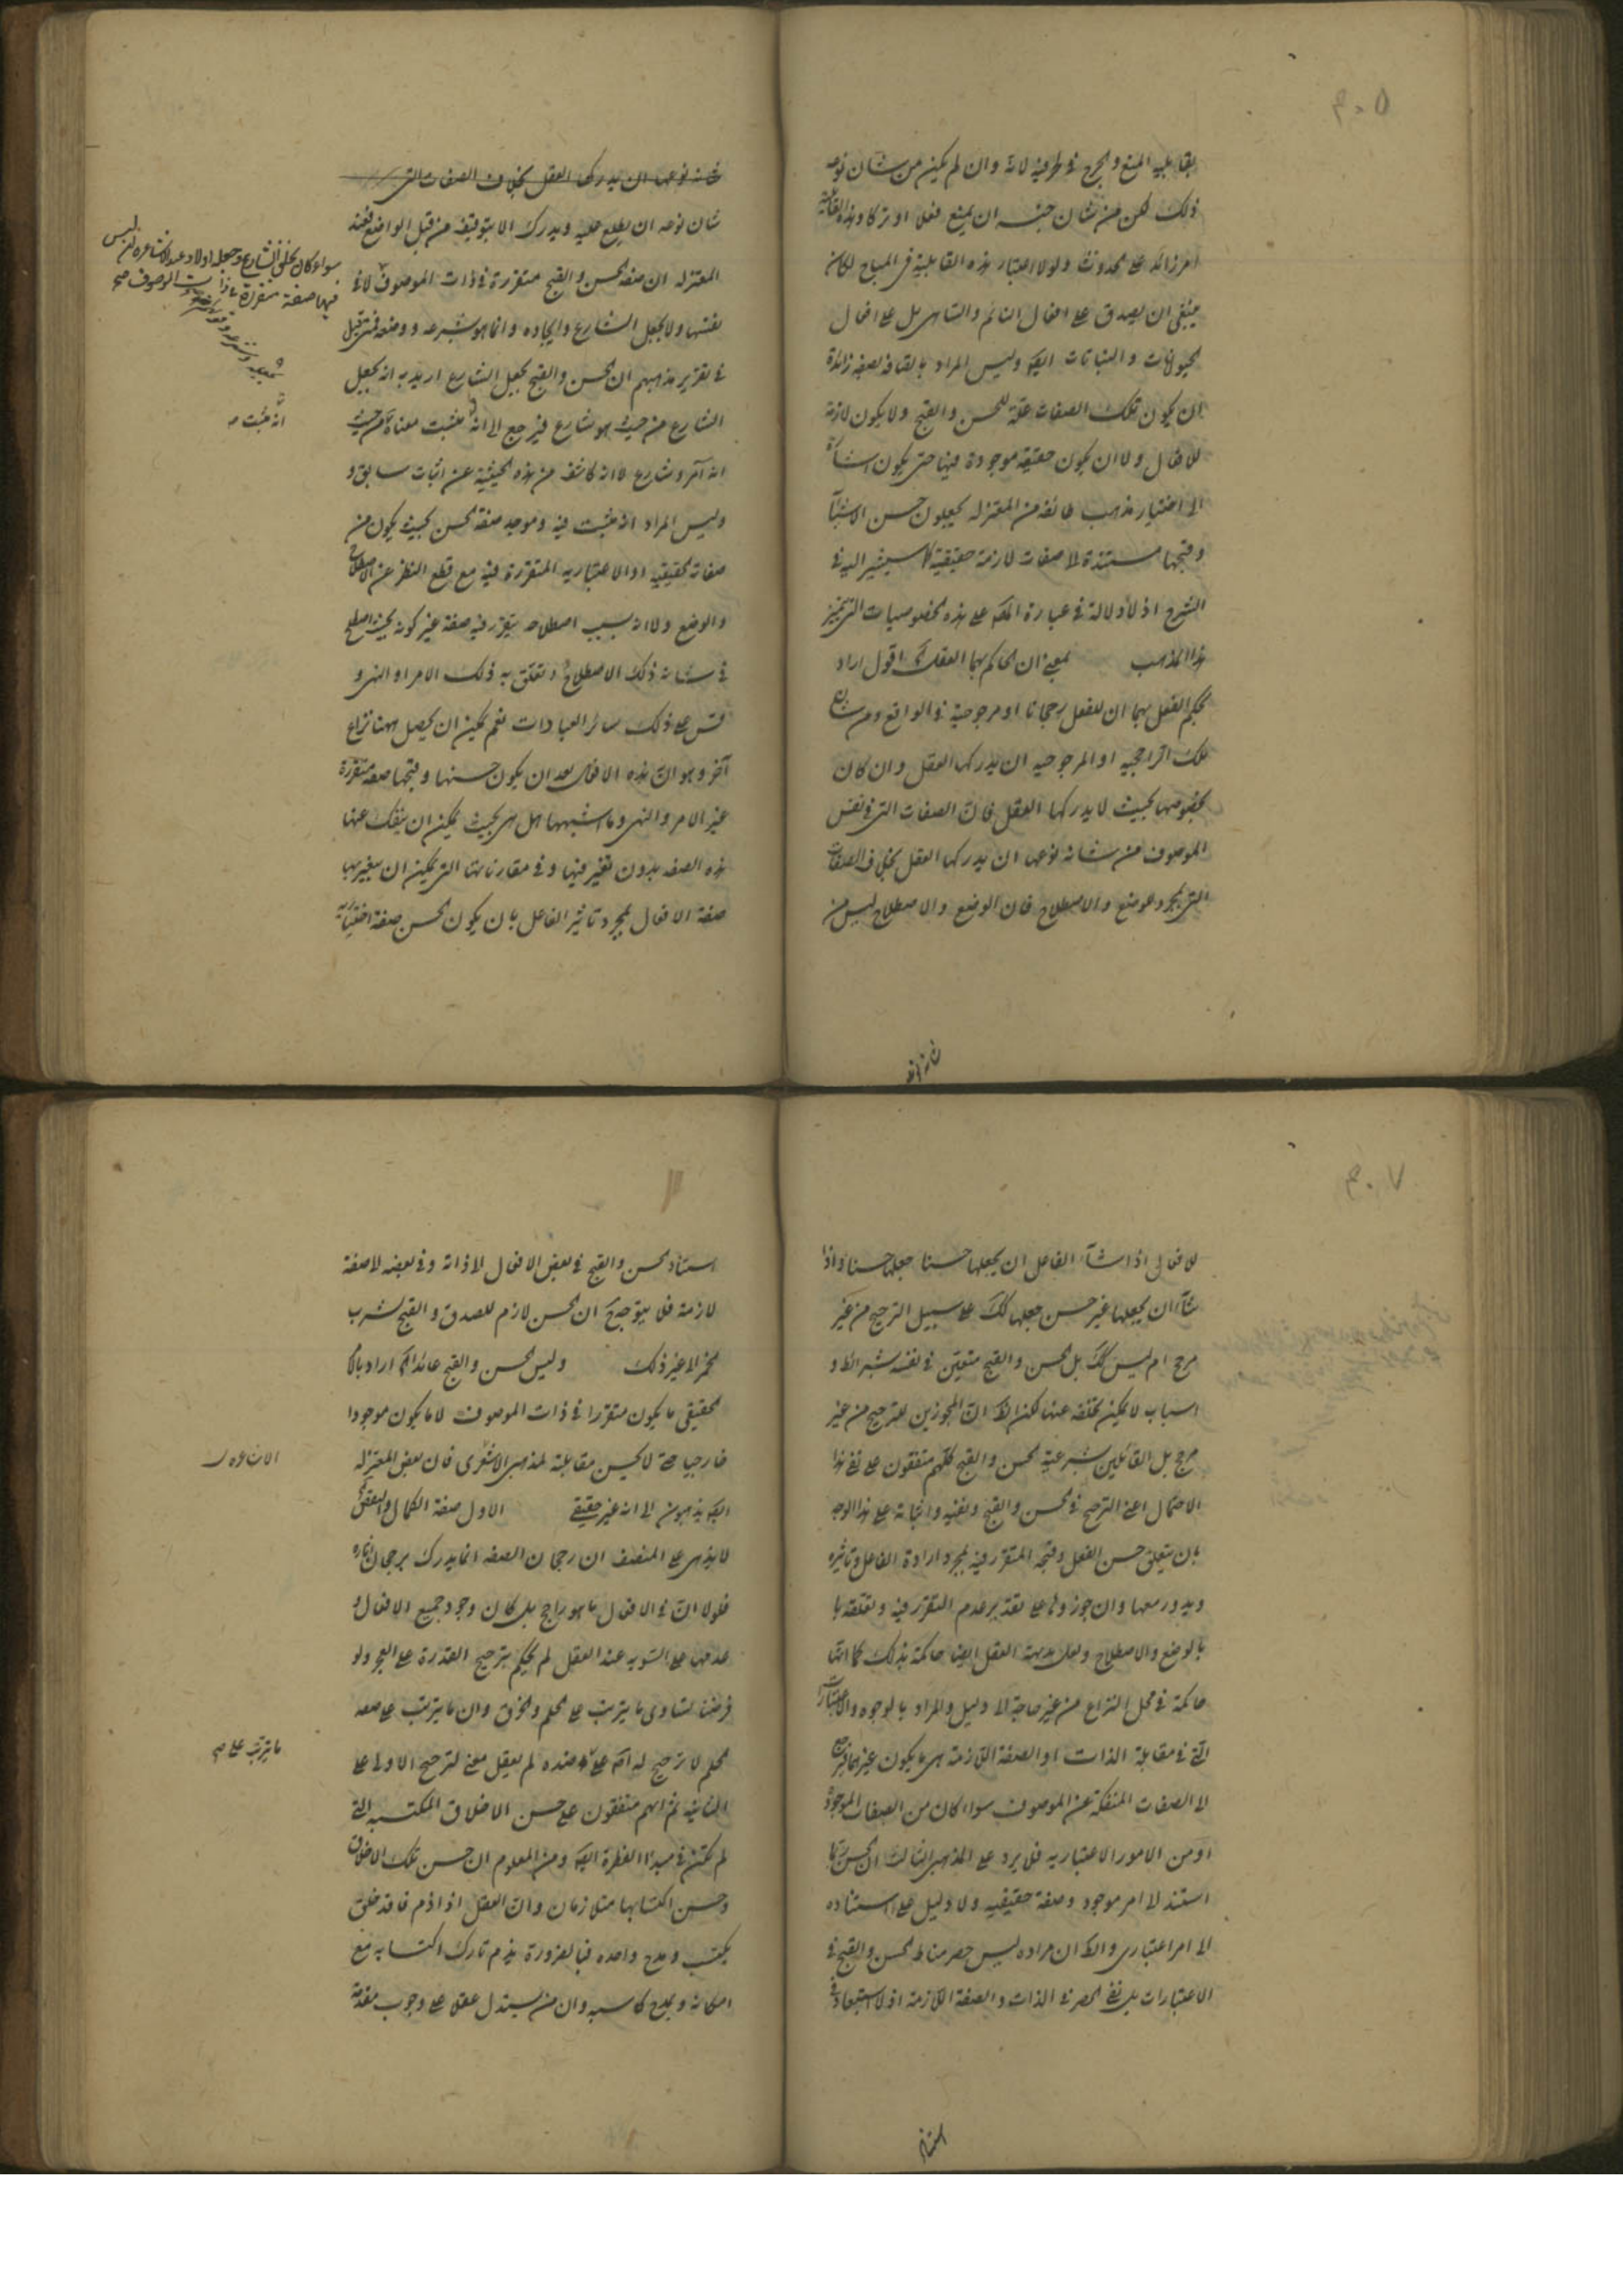 ٣٠٥
بقابلية المنع والحرج في طرفيه لانه وان لم يكن من شان نوعه
ذلك لكن من شان جنسه ان يمنع فعلا او تركا وهذه القابلية
امر زائد على الحدوث ولولا اعتبار هذه القابلية في المباح لكان
ينبغي ان يصدق على افعال النائم والساهي بل على افعال
الحيوانات والنباتات ايضا وليس المراد باتصافه بصفة زائدة
ان يكون تلك الصفات علة للحسن والقبح ولا يكون لازمة
للافعال ولا ان يكون حقيقة موجودة فيها حتى يكون اشارة
الى اختيار مذهب طائفة من المعتزلة يجعلون حسن الاشياء
وقبحها مستندة لا صفات لازمة حقيقية كما سيشير اليه في
الشرح اذ لا دلالة في عبارة المص على هذه الخصوصيات التي تميز
هذا المذهب بمعنى ان الحاكم بهما العقل اقول اراد
بحكم العقل بهما ان للفعل رجحانا او مرجوحية في الواقع ومن شان
تلك الراجحية او المرجوحية ان يدركها العقل وان كان
بخصوصها بحيث لا يدركها العقل فان الصفات التي في نفس
الموصوف من شانه نوعها ان يدركها العقل بخلاف الصفات
التي بمجرد الوضع والاصطلاح فان الوضع والاصطلاح ليس من
شانه نوعها ان يدركها العقل بخلاف الصفات التي
شان نوعه ان يطلع عليه ويدرك الا بتوقيف من قبل الواضع فعند
المعتزلة ان صفة الحسن والقبح متقررة في ذات الموصوف لا في
نفسها ولا بجعل الشارع وايجاده وانما هو بشرعه ووضعه فمتى قيل
في تقرير مذهبهم ان الحسن والقبح بجعل الشارع اريد به انه بجعل
الشارع من حيث هو شارع فيرجع الى انه مثبت معناه من حيث
انه آمر وشارع لا انه كاشف من هذه الحيثية عن اثبات سابق و
وليس المراد انه مثبت فيه وموجد صفة الحسن بحيث يكون من
صفاته الحقيقية او الاعتبارية المتقررة فيه مع قطع النظر عن الاصطلاح
والوضع ولا انه بسبب اصطلاحه يتقرر فيه صفة غير كونه بحيث اصطلح
في شانه ذلك الاصطلاح وتعلق به ذلك الامر او النهي و
قس على ذلك سائر العبادات نعم يمكن ان يحصل ههنا نزاع
آخر وهو ان هذه الافعال بعد ان يكون حسنها وقبحها صفة متقررة
غير الامر والنهي وما اشبهها هل هي بحيث يمكن ان ينفك عنها
هذه الصفة بدون تغير فيها وفي مقارناتها التي يمكن ان يتغير بها
صفة الافعال بمجرد تاثير الفاعل بان يكون الحسن صفة اختيارية
سواء كان بخلق الشارع وجعله اولا وعند الاشاعرة ليس
فيها صفة متقررة في ذات الموصوف صح
انه مثبت
٣٠٧
للافعال اذا شاء الفاعل ان يجعلها حسنا جعلها حسنا واذا
شاء ان يجعلها غير حسن جعلها كك على سبيل الترجيح من غير
مرجح ام ليس كك بل الحسن والقبح متعين في نفسه بشرائط و
اسباب لا يمكن تخلفه عنها لكن الظ ان المجوزين للترجيح من غير
مرجح بل القائلين بشرعية الحسن والقبح كلهم متفقون على نفي هذا
الاحتمال اعني الترجيح في الحسن والقبح ونفيه واثباته على هذا الوجه
بان يتعلق حسن الفعل وقبحه المتقرر فيه بمجرد ارادة الفاعل وتاثيره
ويدور معها وان جوزوا على تقدير عدم التقرر فيه وتعلقه بها
بالوضع والاصطلاح ولعل بديهة العقل ايضا حاكمة بذلك كما انها
حاكمة في محل النزاع من غير حاجة الى دليل والمراد بالوجوه والاعتبارات
التي في مقابلة الذات او الصفة اللازمة هي ما يكون غيرهما
الى الصفات المنفكة عن الموصوف سواء كان من الصفات الموجودة
او من الامور الاعتبارية فلا يرد على المذهب الثالث ان الحسن ربما
استند الى امر موجود وصفة حقيقية ولا دليل على استناده
الى امر اعتباري والظ ان مراده ليس حصر مناط الحسن والقبح في
الاعتبارات بل نفي الحصر في الذات والصفة اللازمة اذ لا استبعاد في
استناد
استناد الحسن والقبح في بعض الافعال لا ذاته وفي بعضه لا صفة
لازمة فلا يتوجه ان الحسن لازم للصدق والقبح لشرب
الخمر الى غير ذلك وليس الحسن والقبح عائدا اراد بالامر
الحقيقي ما يكون متقررا في ذات الموصوف لا ما يكون موجودا
خارجيا لا يحسن مقابلته لمذهب الاشعري فان بعض المعتزلة
ايضا يذهبون الى انه غير حقيقي الاول صفة الكمال والنقص
لا يذهب على المنصف ان رجحان الصفة انما يدرك برجحان آثاره
فلولا ان في الافعال ما هو راجح بل كان وجود جميع الافعال و
عدمها على السوية عند العقل لم يحكم بترجيح القدرة على العجز ولو
فرضنا تساوى ما يترتب على الحلم والخرق وان ما يترتب على صفة
الحلم لا ترجيح له على ضده لم يعقل معنى لترجيح الاولى على
الثانية ثم انهم متفقون على حسن الاخلاق المكتسبة التي
لم تكن في مبدا الفطرة ايضا ومن المعلوم ان حسن تلك الاخلاق
وحسن اكتسابها متلازمان وان العقل اذا ذم فاقد خلق
يكتسب ومدح واجده فبالضرورة يذم تارك اكتسابه مع
امكانه ويمدح كاسبه وان من يستدل عقلا على وجوب مقدمة
ما يترتب على صح